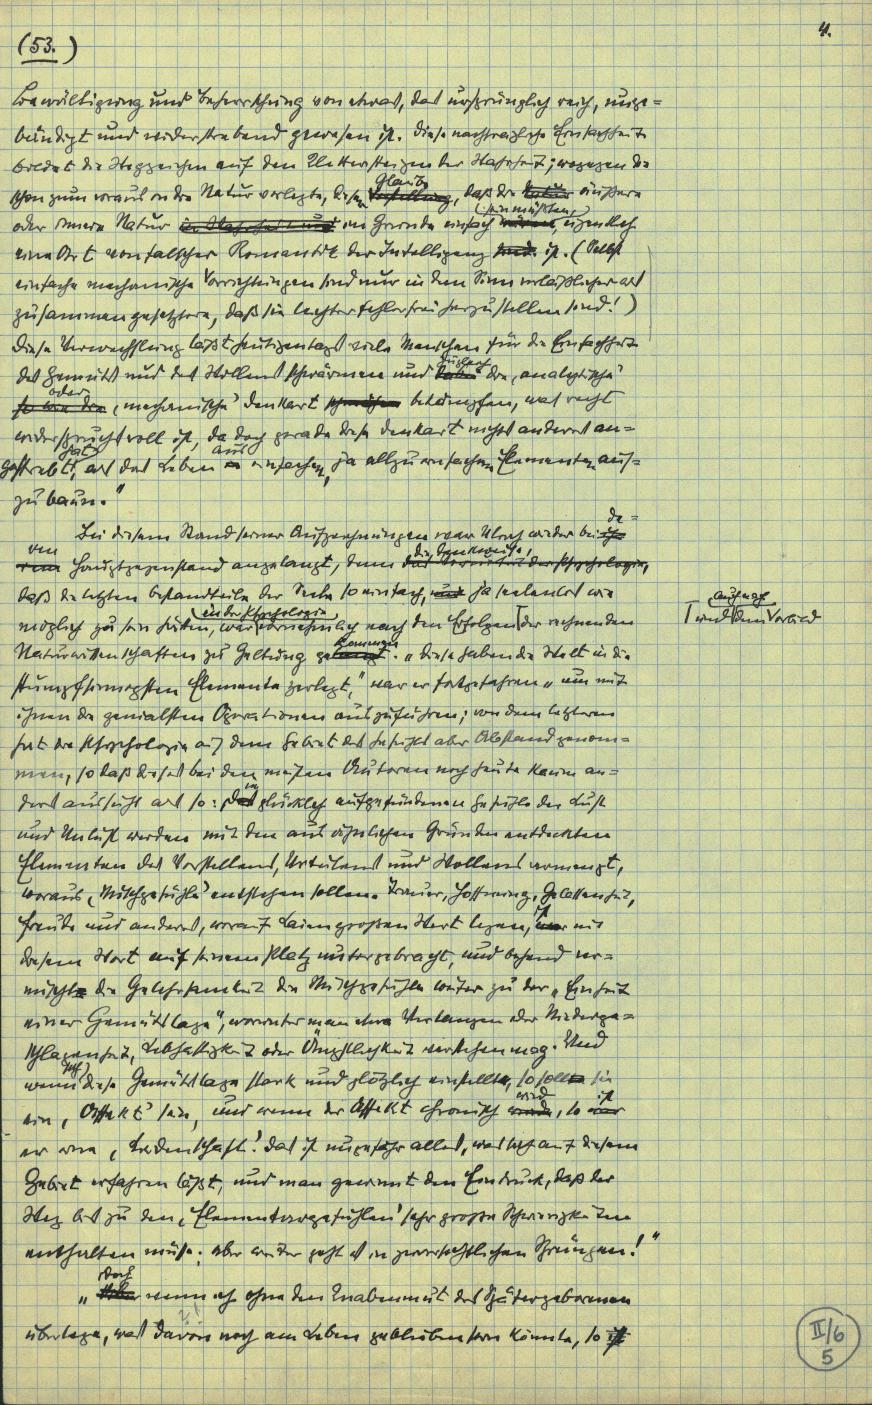 4.
(53.)
Bewältigung und Beherrschung von etwas, das ursprünglich reich, unge=
bändigt und widerstrebend gewesen ist. Diese nachträgliche Einfachheit
bildet die Wegzeichen auf den Klettersteigen der Wahrheit; wogegen die
schon zum voraus in die Natur verlegte, dieser Glaube, daß die äußere
oder innere Natur im Grunde einfach sein müßten, eigentlich
eine Art von falscher Romantik der Intelligenz ist. (Selbst
einfache mechanische Vorrichtungen sind nur in dem Sinn verläßlicher als
zusammengesetztere, daß sie leichter fehlerfrei herzustellen sind!)
Diese Verwechslung läßt heutigentags viele Menschen für die Einfachheit
des Gemüts und des Willens schwärmen und zugleich die ‚analytische'
oder ‚mechanische' Denkart bekämpfen, was recht
widerspruchsvoll ist, da doch gerade diese Denkart nichts anderes an=
gestrebt hat, als das Leben aus einfachen, ja allzu einfachen Elementen auf=
zubaun."
Bei diesem Stand seiner Aufzeichnungen war Ulrich wieder bei de=
ren Hauptgegenstand angelangt, denn die Denkweise,
daß die letzten Bestandteile der Seele so einfach, ja seelenlos wie
möglich zu sein hätten, war in der Psychologie vornehmlich nach den Erfolgen der rechnenden
⌈ und auch nach dem Vorbild
Naturwissenschaften zu Geltung gekommen. „Diese haben die Welt in die
stumpfsinnigsten Elemente zerlegt," war er fortgefahren „um mit
ihnen die genialsten Operationen auszuführen; von dem letzteren
hat die Psychologie auf dem Gebiet des Gefühls aber Abstand genom=
men, so daß dieses bei den meisten Autoren noch heute kaum an=
ders aussieht als so: die glücklich aufgefundenen Gefühle der Lust
und Unlust werden mit den aus ähnlichen Gründen entdeckten
Elementen des Vorstellens, Urteilens und Wollens vermengt,
woraus ‚Mischgefühle' entstehen sollen. Trauer, Hoffnung, Gelassenheit,
Freude und anderes, worauf Laien großen Wert legen, ist mit
diesem Wort auf seinem Platz untergebracht, und behend ver=
mischt die Gelehrsamkeit die Mischgefühle weiter zu der „Einheit
einer Gemütslage", worunter man etwa Verlangen oder Niederge=
schlagenheit, Lebhaftigkeit oder Ängstlichkeit verstehen mag. Und
wenn sich diese Gemütslage stark und plötzlich einstellt, so soll sie
ein ‚Affekt' sein, und wenn der Affekt chronisch wird, so ist
er eine ‚Leidenschaft'. Das ist ungefähr alles, was sich auf diesem
Gebiet erfahren läßt, und man gewinnt den Eindruck, daß der
Weg bis zu den ‚Elementargefühlen' sehr große Schwierigkeiten
enthalten müsse; aber weiter geht es in zuversichtlichen Sprüngen!"
„Doch wenn ich ohne den Knabenmut des Spätergeborenen
überlege, was davon noch am Leben geblieben sein könnte, so
II/6
5